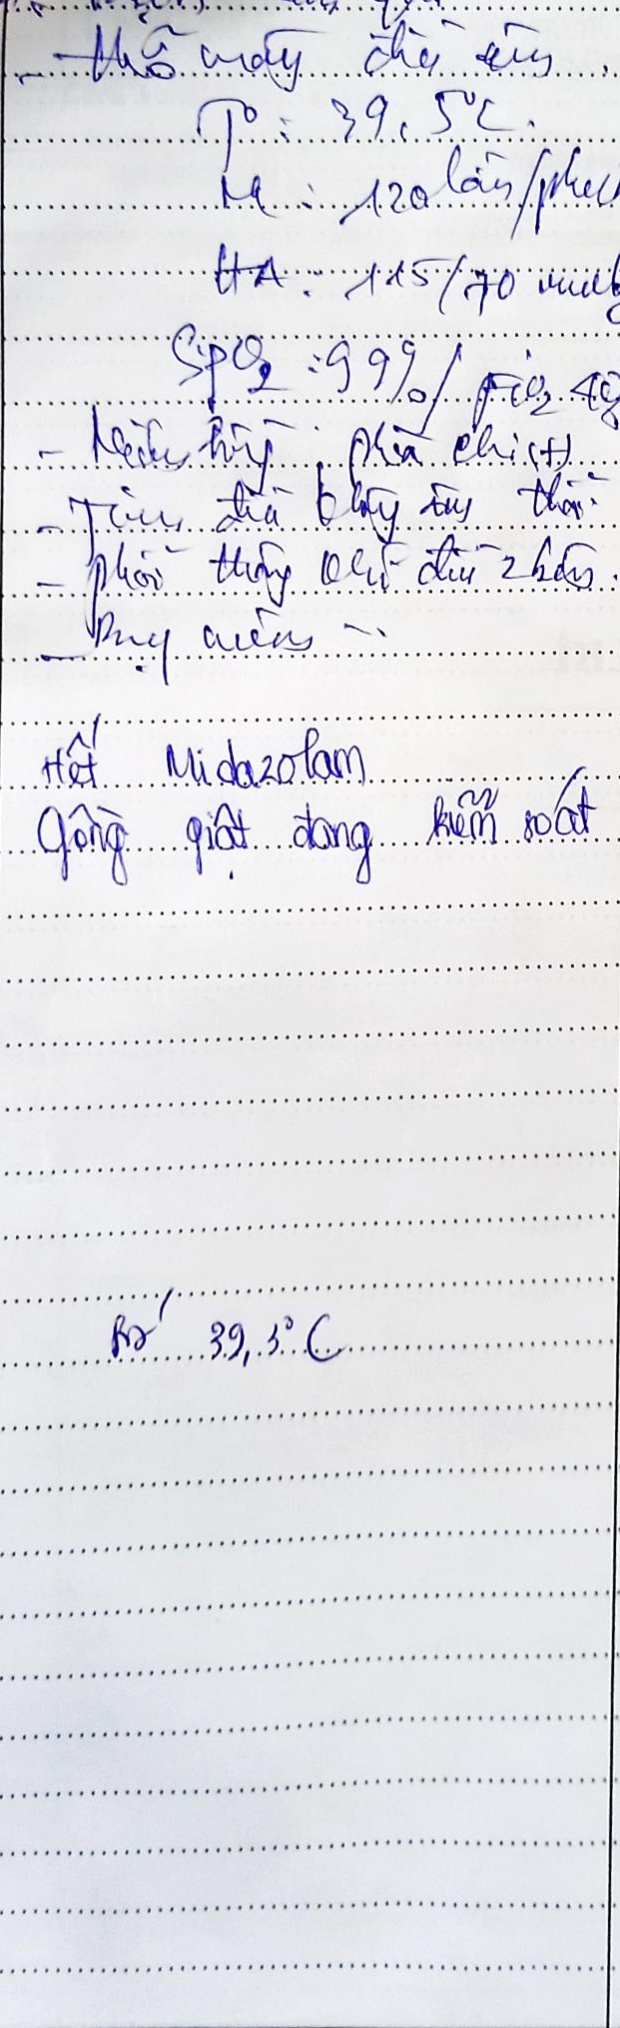 - thở máy
T° : 39,5°C.
M : 120 lần/phút
HA : 115/70 mmHg
SpO2 : 99% / FiO2 40
- Niêm hồng, phù chi (+)
- Tim đều không âm thổi
- phổi thông khí đều 2 bên.
- Bụng mềm
Hết Midazolam
Gồng giật đang kiểm soát
39,3°C